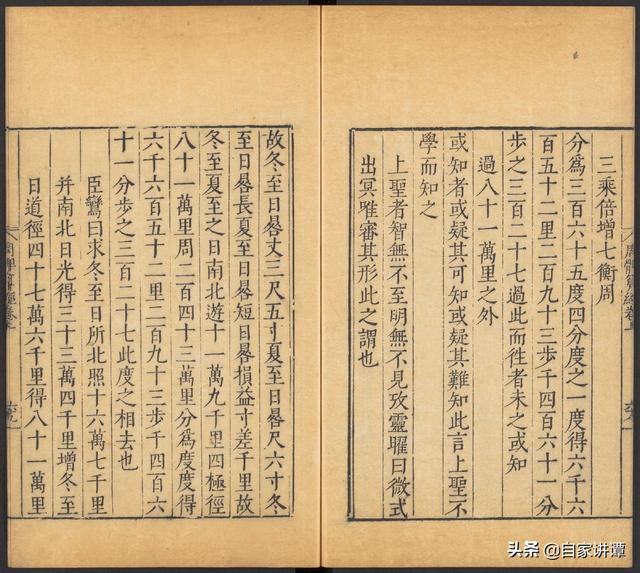 三乘倍增七衡周
分爲三百六十五度四分度之一度得六千六
百五十二里二百九十三步千四百六十一分
步之三百二十七過此而徃者未之或知
過八十一萬里之外
或知者或疑其可知或疑其難知此言上聖不
學而知之
上聖者智無不至明無不見攷靈曜曰微式
出冥唯審其形此之謂也
故冬至日晷丈三尺五寸夏至日晷尺六寸冬
至日晷長夏至日晷短日晷損益寸差千里故
冬至夏至之日南北遊十一萬九千里四極徑
八十一萬里周二百四十三萬里分爲度度得
六千六百五十二里二百九十三步千四百六
十一分步之三百二十七此度之相去也
臣鸞曰求冬至日所北照十六萬七千里
并南北日光得三十三萬四千里增冬至
日道徑四十七萬六千里得八十一萬里
头条 @自家讲谭